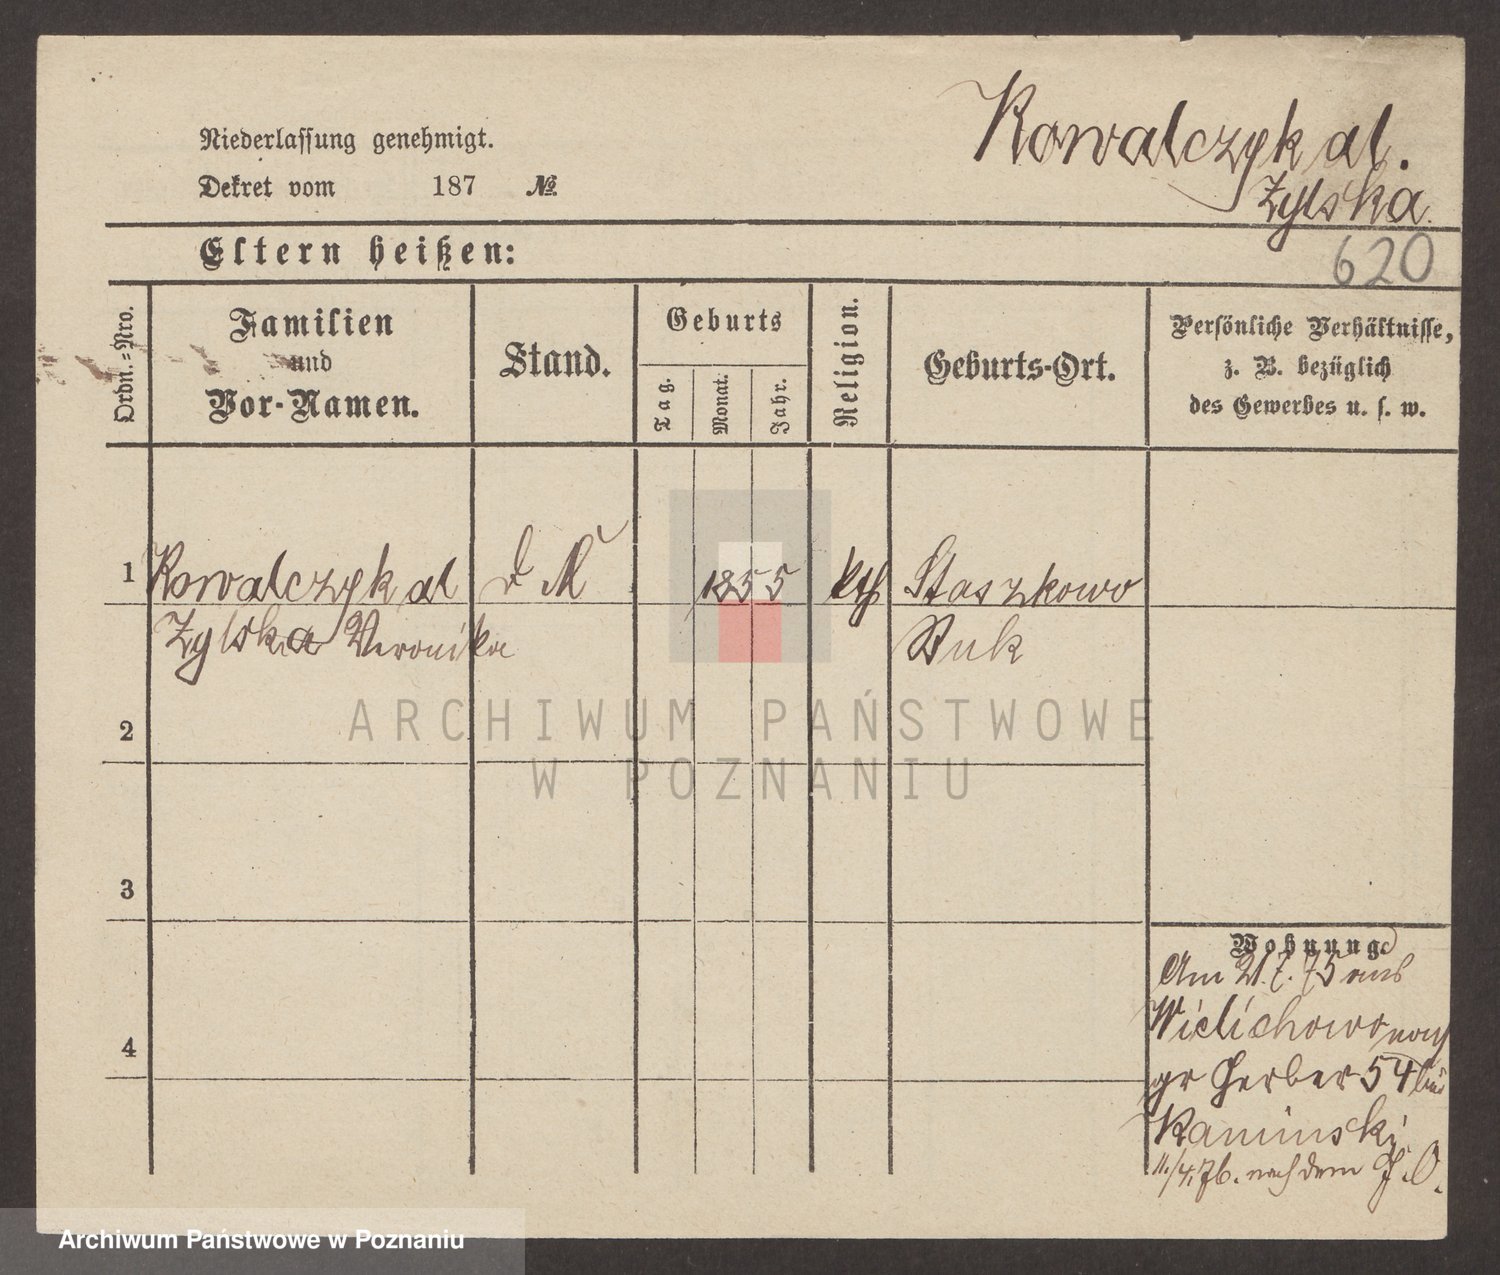 Kowalczyk al.
Zylska
Niederlassung genehmigt.
Dekret vom 187 №
Eltern heißen:
620
Ordn.=Nro.
Familien
und
Vor-Namen.
Stand.
Geburts
Tag.
Monat.
Jahr.
Religion.
Geburts-Ort.
Persönliche Verhältnisse,
z. B. bezüglich
des Gewerbes u. s. w.
1 Kowalczyk al D M 1855 kth Staszkowo
Zylska Veronika Buk
ARCHIWUM PAŃSTWOWE
W POZNANIU
2
3
4
Wohnung
Am 21.7.75 aus
Wielichowo nach
gr Gerber 54 bei
Kaminski
11./4.76. nach dem
Archiwum Państwowe w Poznaniu